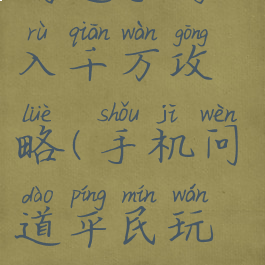 rù qiān wàn gōng
入千万攻
lüè shǒu jī wèn
略(手机问
dào píng mín wán
道平民玩